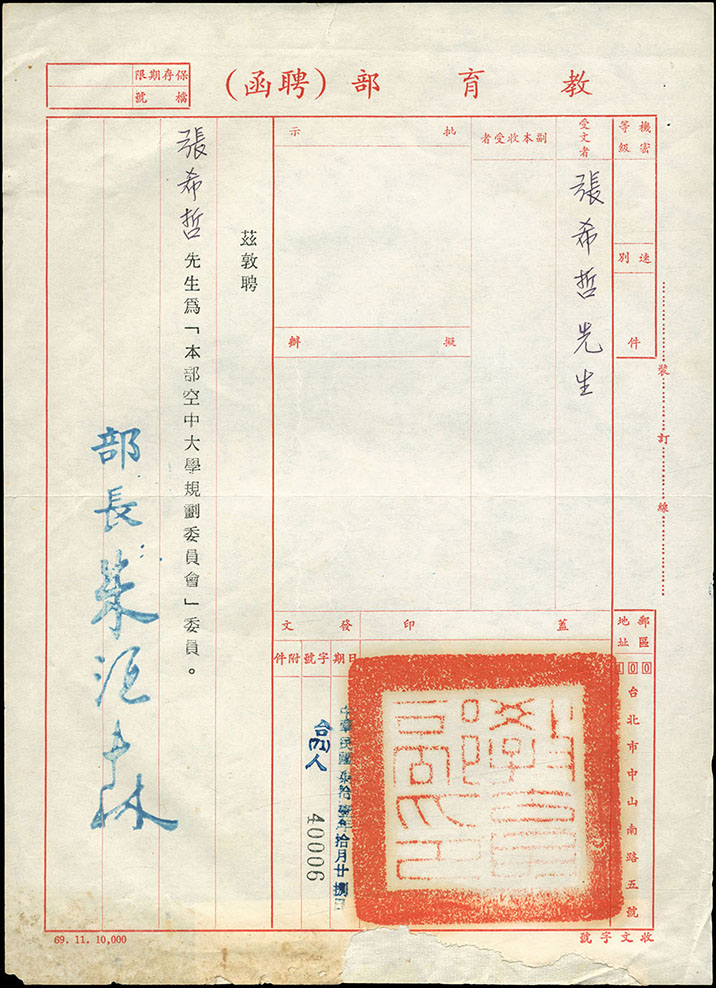 教育部(聘函)
保存期限
檔號
機密等級
速別
件
受文者
張希哲先生
副本收受者
批示
擬辦
茲敦聘
張希哲先生為「本部空中大學規劃委員會」委員。
部長朱滙森
裝訂線
郵區地址
100
台北市中山南路五號
蓋印
發文
日期
字號
附件
中華民國柒拾壹年拾月廿捌日
台(71)人
40006
教育部印
收文字號
69. 11. 10,000